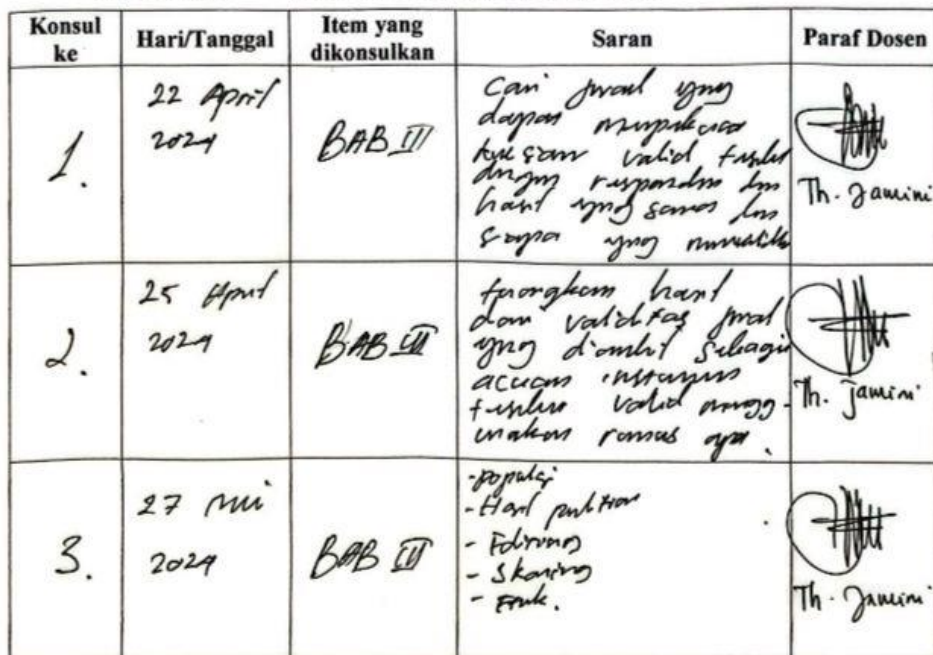 Konsul ke
Hari/Tanggal
Item yang dikonsulkan
Saran
Paraf Dosen
1.
22 April
2024
BAB III
Cari jurnal yang
dapat
valid
dengan responden dan
hasil yang sama dan
siapa yang
Th. Jamini
2.
25 April
2024
BAB III
terangkan hasil
dari validitas jurnal
yang diambil sebagai
acuan instrumen
valid mengg-
unakan rumus apa.
Th. Jamini
3.
27 Mei
2024
BAB III
- populasi
- Hasil
- Editing
- Skoring
- Etik.
Th. Jamini